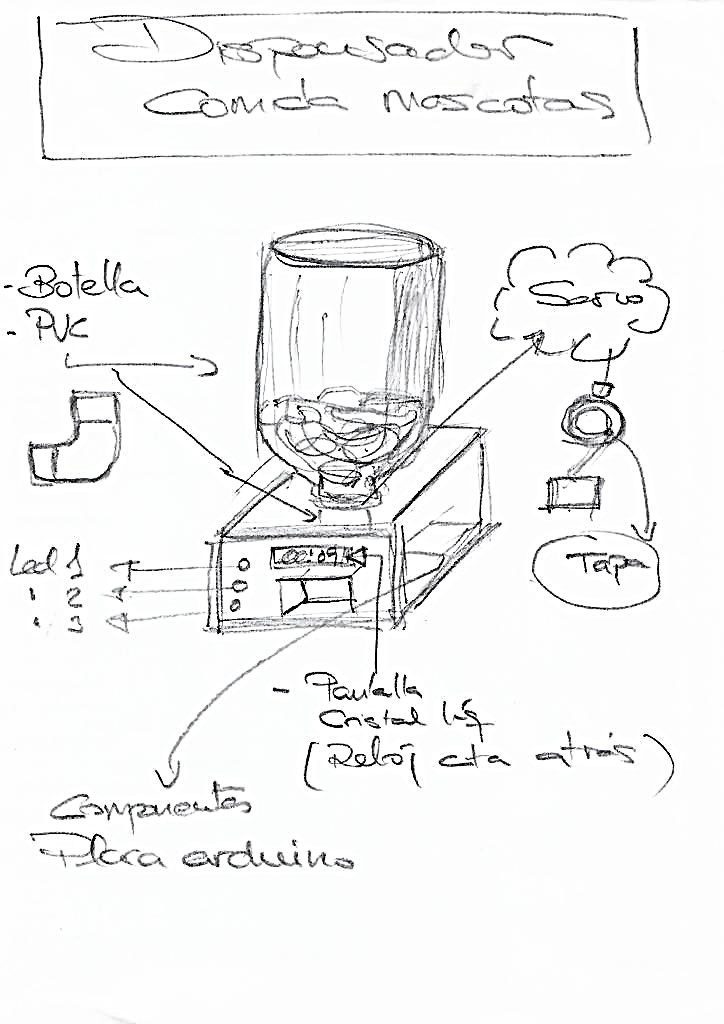 Dispensador
Comida Mascotas
- Botella
- PVC
Servo
Tapa
Led 1
" 2
" 3
00:09
- Pantalla
Cristal líq
(Reloj cta atrás)
Componentes
Placa arduino